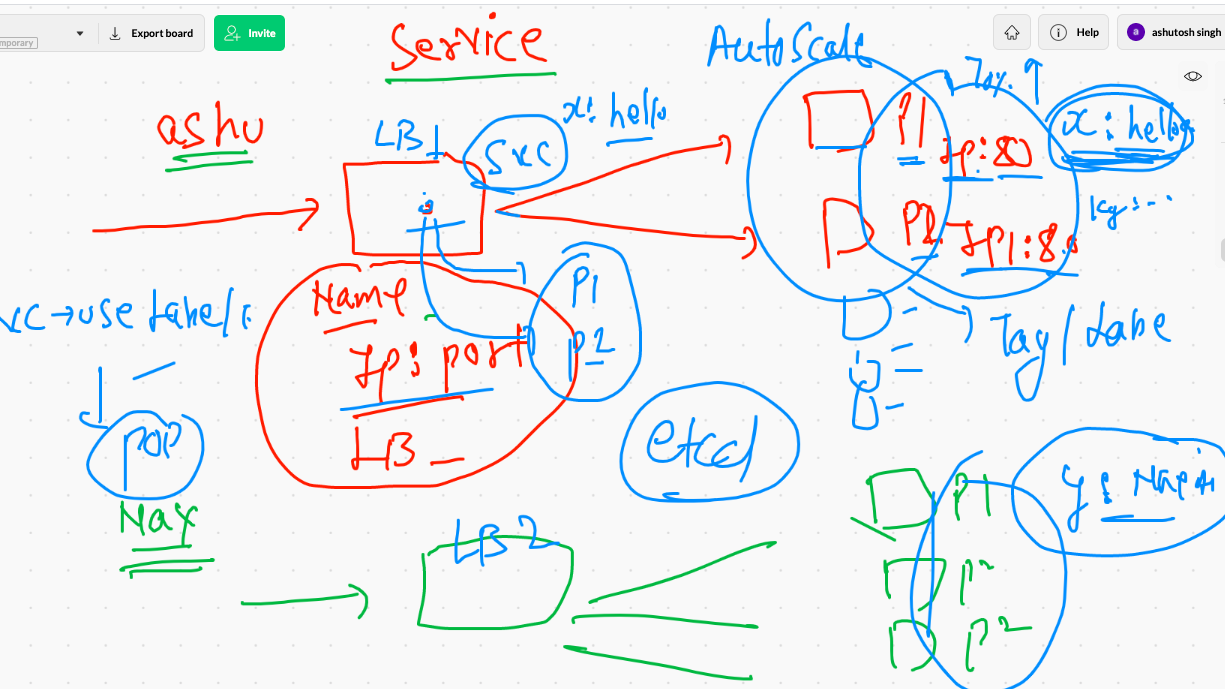 mporary
Export board
Invite
Help
a
ashutosh singh
Service
AutoScale
ashu
LB1
SVC
x: hello
P1
IP:80
x: hello
P2
IP1:80
Name
IP: port
LB
P1
P2
Tag/Labe
→use
POP
etcd
Nax
LB2
P1
P2
P2
y: